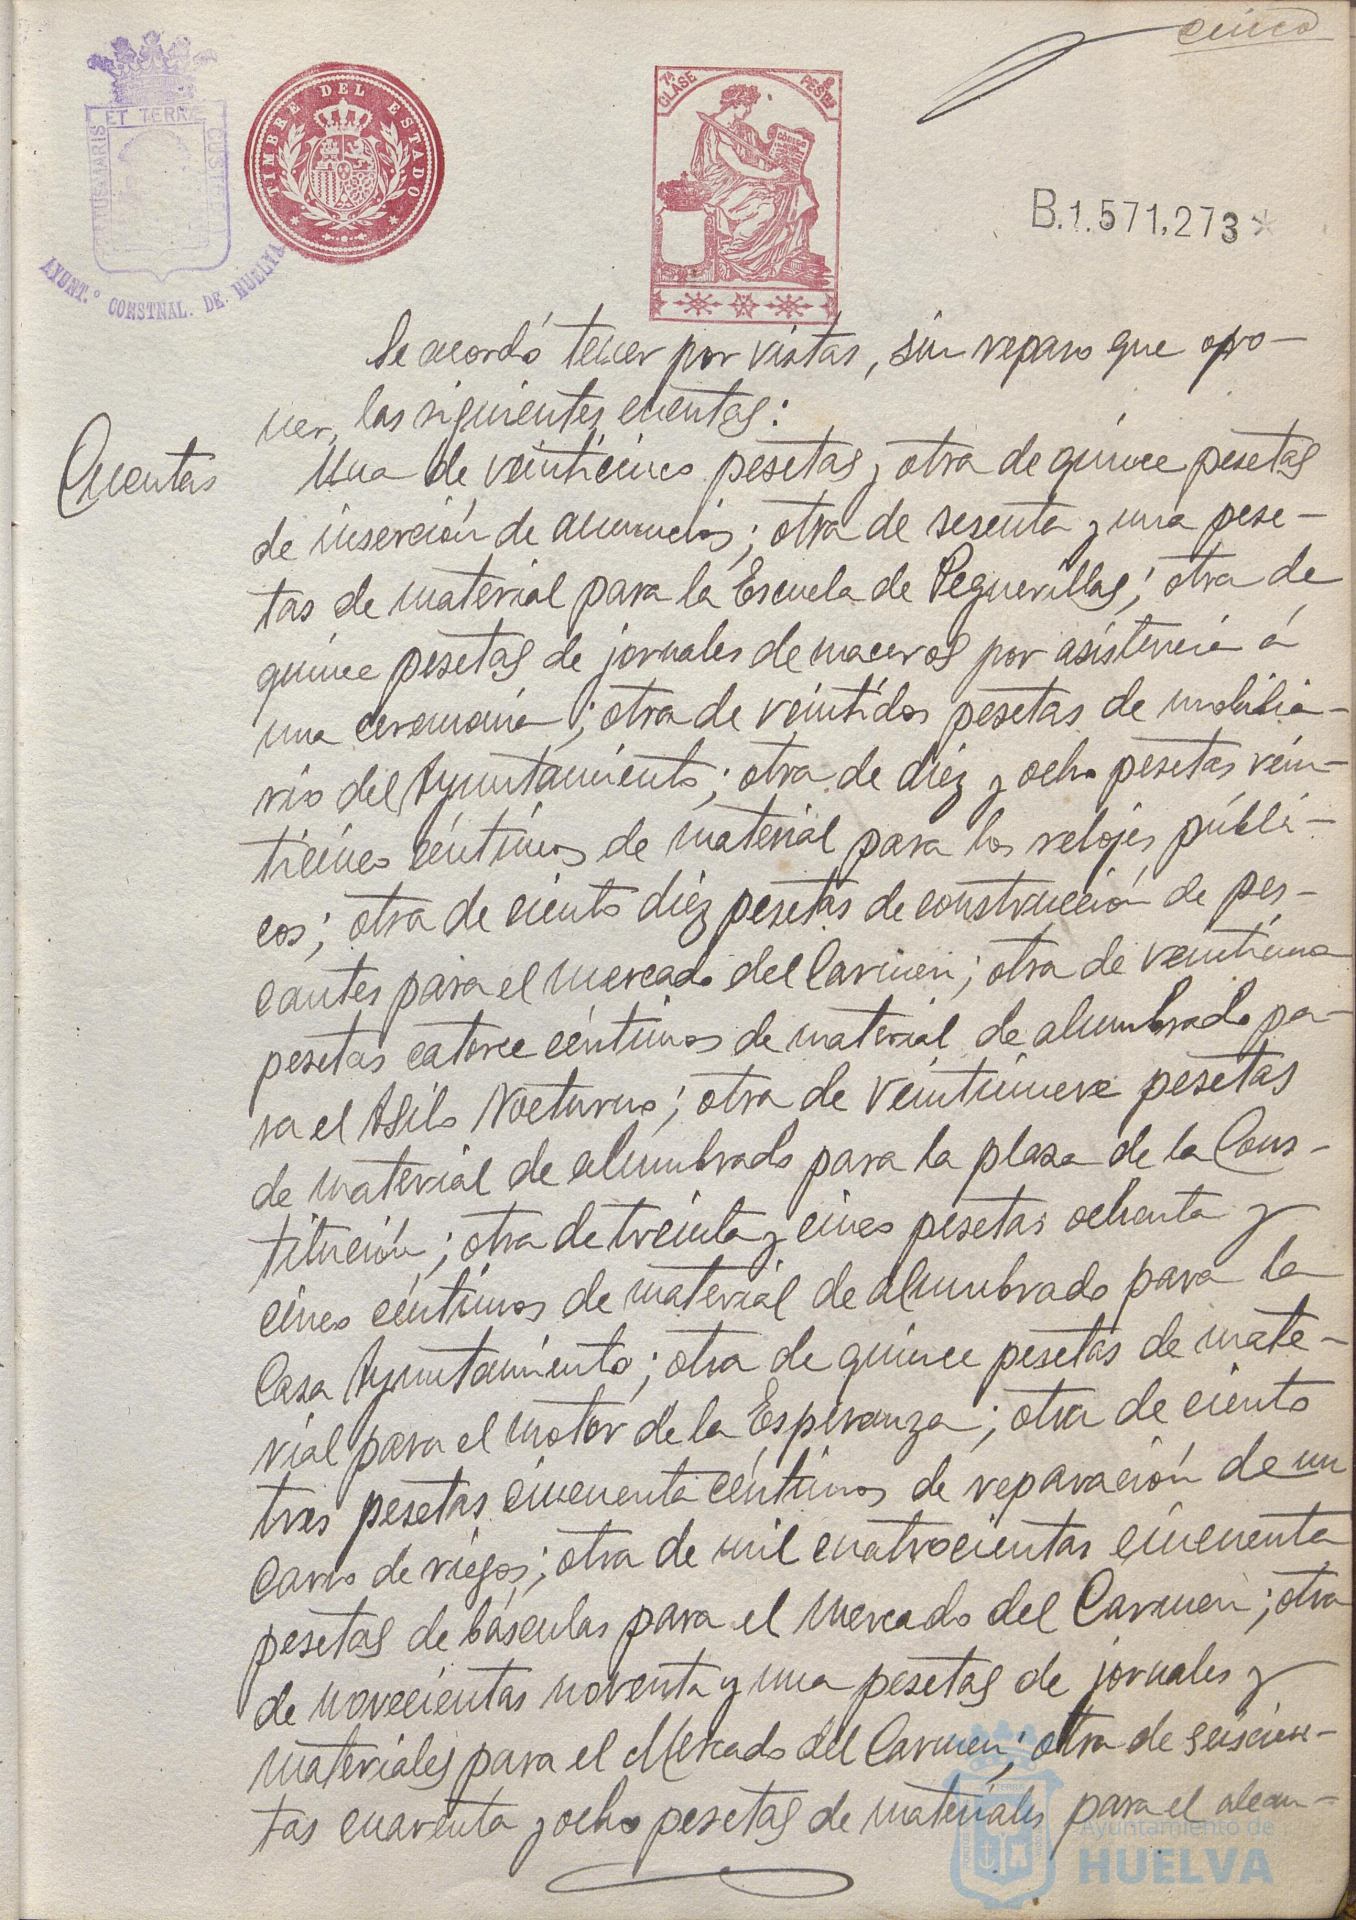 cinco
ET TERRÆ
CUSTO
PORTUS MARIS
AYUNT.º CONSTNAL. DE HUELVA
TIMBRE DEL ESTADO
7ª CLASE
8 PESTAS
B.1.571.273*
Se acordó tener por vistas, sin reparo que opo-
ner, las siguientes cuentas:
Cuentas
Una de veinticinco pesetas y otra de quince pesetas
de inserción de anuncios; otra de sesenta y una pese-
tas de material para la Escuela de Peguerillas; otra de
quince pesetas de jornales de maceros por asistencia á
una ceremonia; otra de veintidos pesetas de mobilia-
rio del Ayuntamiento; otra de diez y ocho pesetas vein-
ticinco céntimos de material para los relojes públi-
cos; otra de ciento diez pesetas de construcción de pes-
cantes para el mercado del Carmen; otra de veintiuna
pesetas catorce céntimos de material de alumbrado pa-
ra el Asilo Nocturno; otra de veintinueve pesetas
de material de alumbrado para la plaza de la Cons-
titución; otra de treinta y cinco pesetas ochenta y
cinco céntimos de material de alumbrado para la
Casa Ayuntamiento; otra de quince pesetas de mate-
rial para el motor de la Esperanza; otra de ciento
tres pesetas cincuenta céntimos de reparación de un
carro de riegos; otra de mil cuatrocientas cincuenta
pesetas de básculas para el mercado del Carmen; otra
de novecientas noventa y una pesetas de jornales y
materiales para el Mercado del Carmen; otra de seiscien-
tas cuarenta y ocho pesetas de materiales para el alcan-
Ayuntamiento de
HUELVA